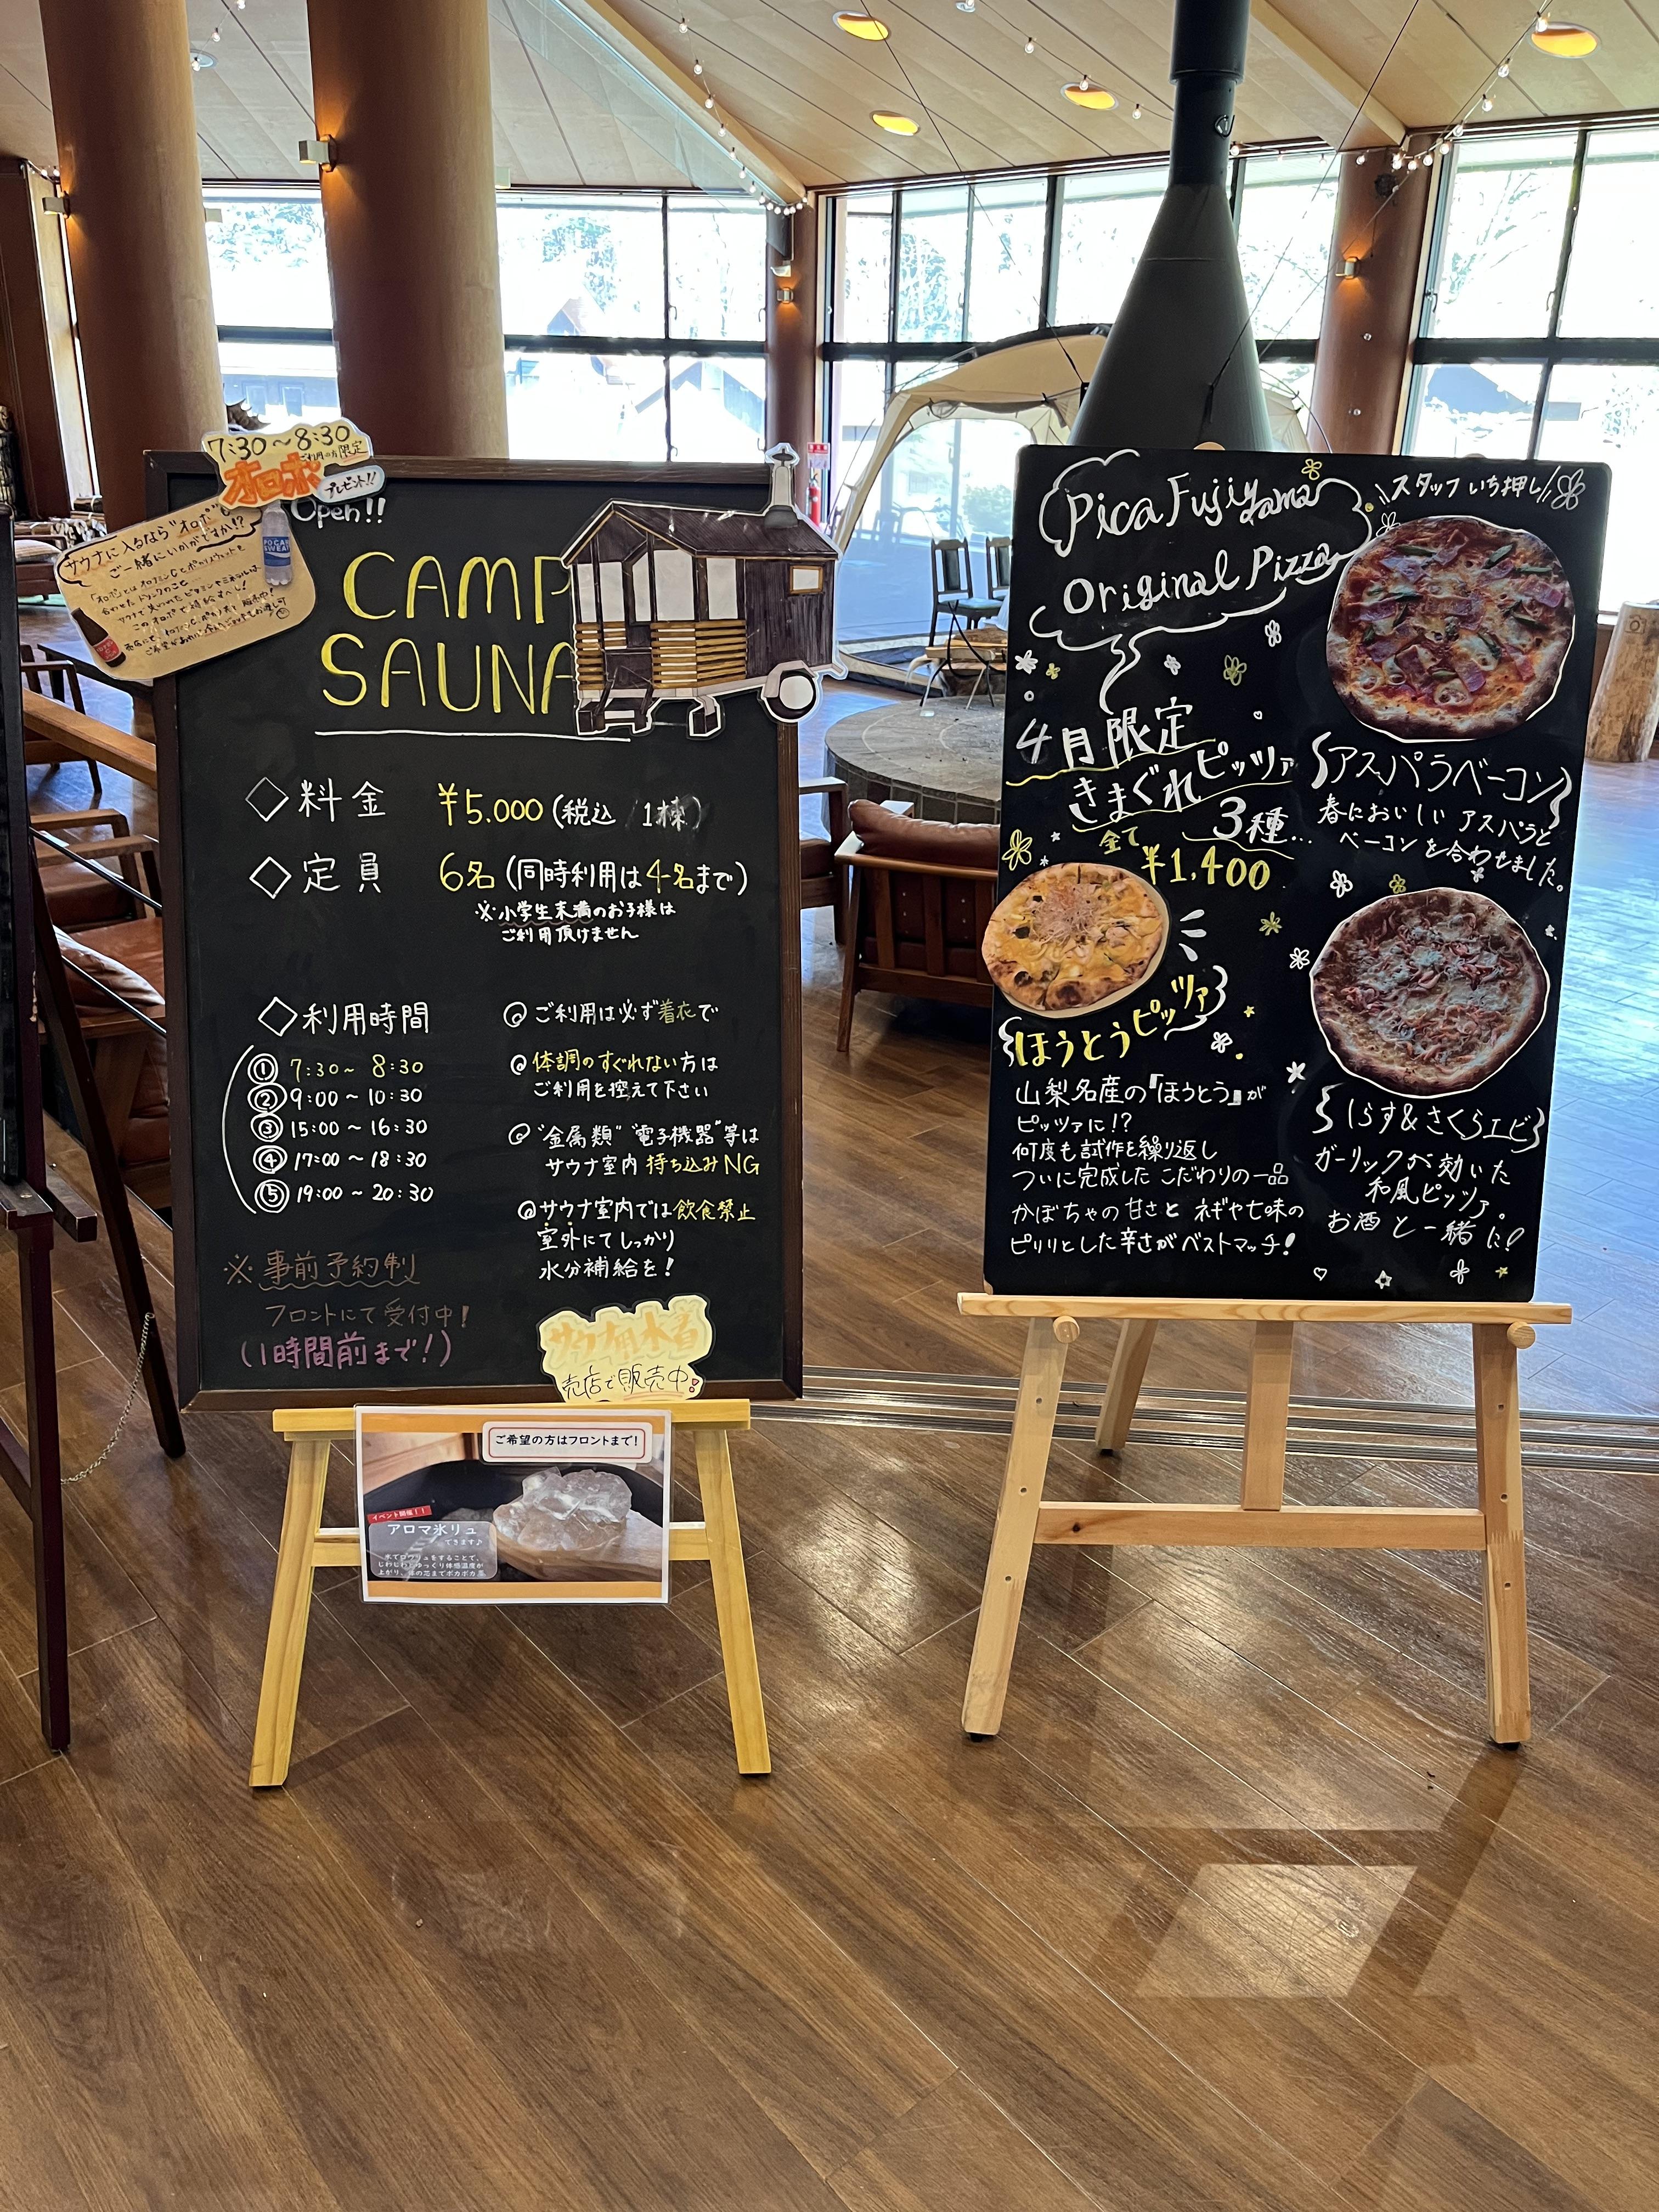 7:30～8:30
ご利用の方限定
オロポ
プレゼント!!
Open!!
サウナに入るなら"オロポ"
ご一緒にいかがですか!?
POCARI
SWEAT
CAMP
SAUNA
◇料金 ¥5.000(税込/1棟)
◇定員 6名(同時利用は4名まで)
※小学生未満のお子様は
ご利用頂けません
◇利用時間
① 7:30～8:30
② 9:00～10:30
③ 15:00～16:30
④ 17:00～18:30
⑤ 19:00～20:30
◎ご利用は必ず着衣で
◎体調のすぐれない方は
ご利用を控えて下さい
◎"金属類""電子機器"等は
サウナ室内持ち込みNG
◎サウナ室内では飲食禁止
室外にてしっかり
水分補給を!
※事前予約制
フロントにて受付中!
(1時間前まで!)
サウナ用水着
売店で販売中!
ご希望の方はフロントまで!
イベント開催!!
アロマ氷リュ
できます♪
氷でロウリュをすることで、
じわじわとゆっくり体感温度が
上がり、体の芯までポカポカ
Pica Fujiyama
Original Pizza
\\スタッフいち押し//
4月限定
きまぐれピッツァ
3種...
全て
¥1,400
アスパラベーコン
春においしいアスパラと
ベーコンを合わせました。
ほうとうピッツァ
山梨名産の『ほうとう』が
ピッツァに!?
何度も試作を繰り返し
ついに完成したこだわりの一品
かぼちゃの甘さとネギや七味の
ピリリとした辛さがベストマッチ!
しらす&さくらエビ
ガーリックが効いた
和風ピッツァ。
お酒と一緒に!